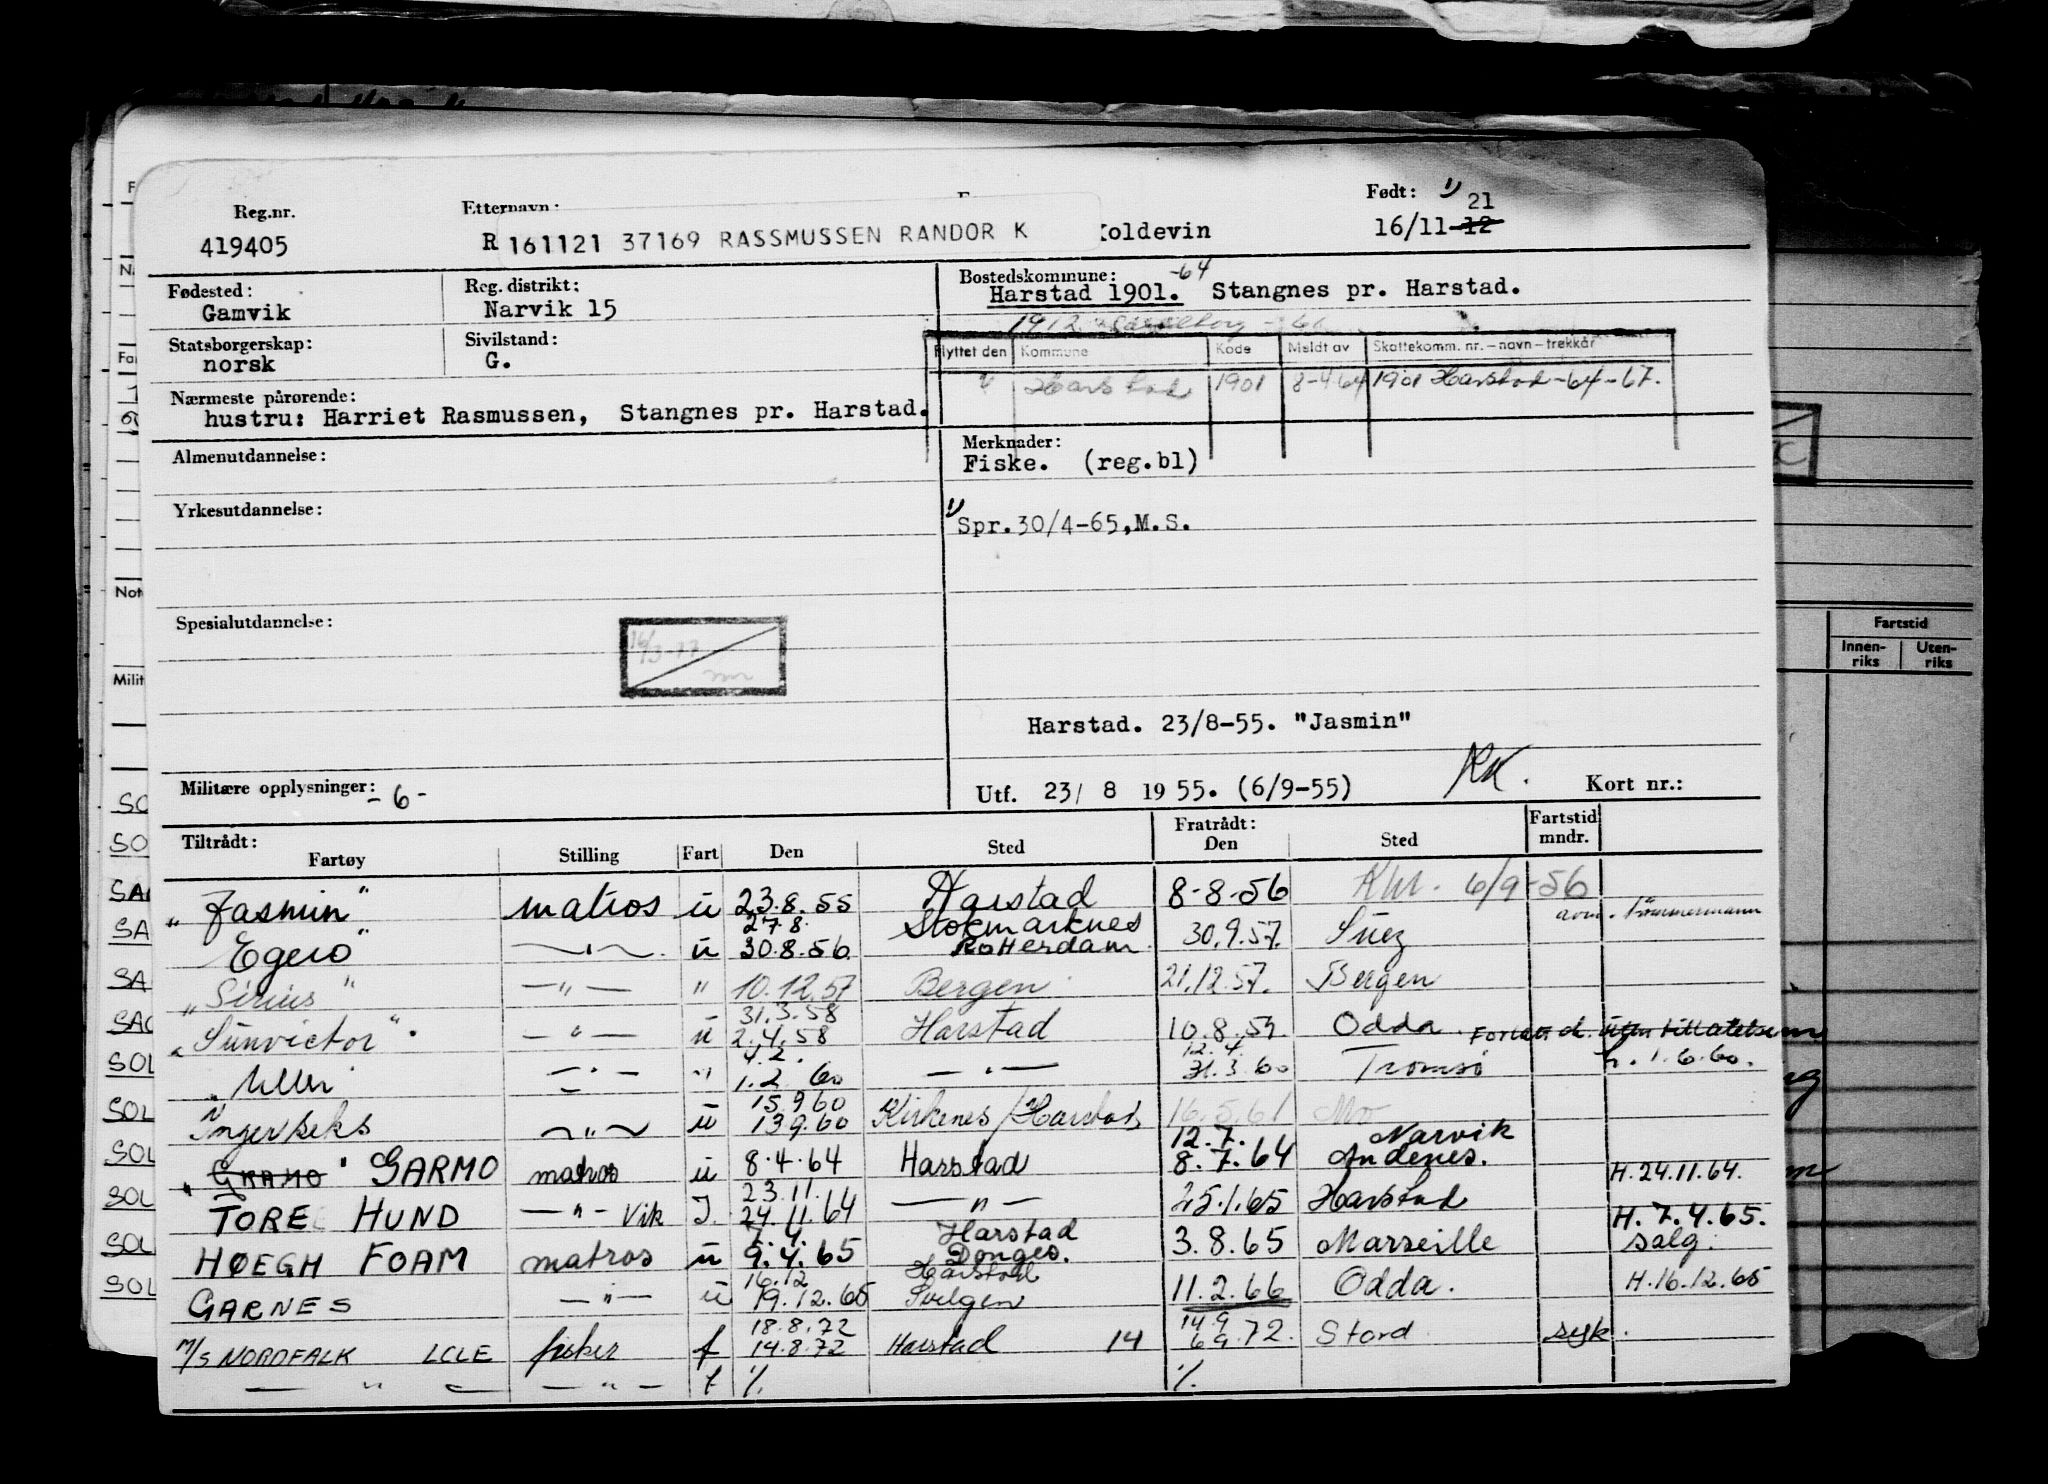 Reg.nr. Etternavn: Født: 1) 21
419405 R 161121 37169 RASSMUSSEN RANDOR K Koldevin 16/11-12
Fødested: Reg. distrikt: Bostedskommune: -64
Gamvik Narvik 15 Harstad 1901. Stangnes pr. Harstad.
Statsborgerskap: Sivilstand: 1912
norsk G.
Flyttet den Kommune Kode Meldt av Skattekomm. nr. – navn – trekkår
Harstad 1901 8-4 64 1901 Harstad-64-67.
Nærmeste pårørende:
hustru: Harriet Rasmussen, Stangnes pr. Harstad.
Almenutdannelse: Merknader:
Fiske. (reg.bl)
Yrkesutdannelse: 1) Spr.30/4-65,M.S.
Spesialutdannelse:
16/3-77
Harstad. 23/8-55. "Jasmin"
Militære opplysninger: -6- Utf. 23/ 8 1955. (6/9-55) RK. Kort nr.:
Tiltrådt: Fratrådt: Fartstid
Fartøy Stilling Fart Den Sted Den Sted mndr.
"Jasmin" matros u 23.8.55 Harstad 8-8-56 6/9-56
27.8. Stokmarknes avm. tømmermann
Egero" —"— u 30.8.56 Rotterdam 30.9.57. Suez
"Sirius" —"— " 10.12.57 Bergen 21.12.57. Bergen
31.3.58
"Sunvictor" —"— u 2.4.58 Harstad 10.8.59 Odda. Forlatt d. uten tillatelse
4.2. 12.4.
"Ulli" —"— " 1.2.60 —"— 31.3.60 Tromsø h. 1.6.60.
15.9.60
Ingerseks —"— u 13.9.60 Kirkenes/Harstad 16.5.61 Mo
12.7. Narvik
"Gramo" GARMO matros u 8.4.64 Harstad 8.7.64 Andenes. H.24.11.64.
23.11.
TORE HUND —"— Vik I. 24.11.64 —"— 25.1.65 Harstad
7.4. Harstad H. 7.4.65.
HØEGH FOAM matros u 9.4.65 Donges. 3.8.65 Marseille salg.
16.12 Harstad
GARNES —"— u 19.12.65 Svelgen 11.2.66 Odda. H.16.12.65
18.8.72 14.9
M/S NORDFALK LCLE fisker f 14.8.72 Harstad 14 6.9.72. Stord syk.
— " — —"— f % %
Fartstid
Innen-riks Uten-riks